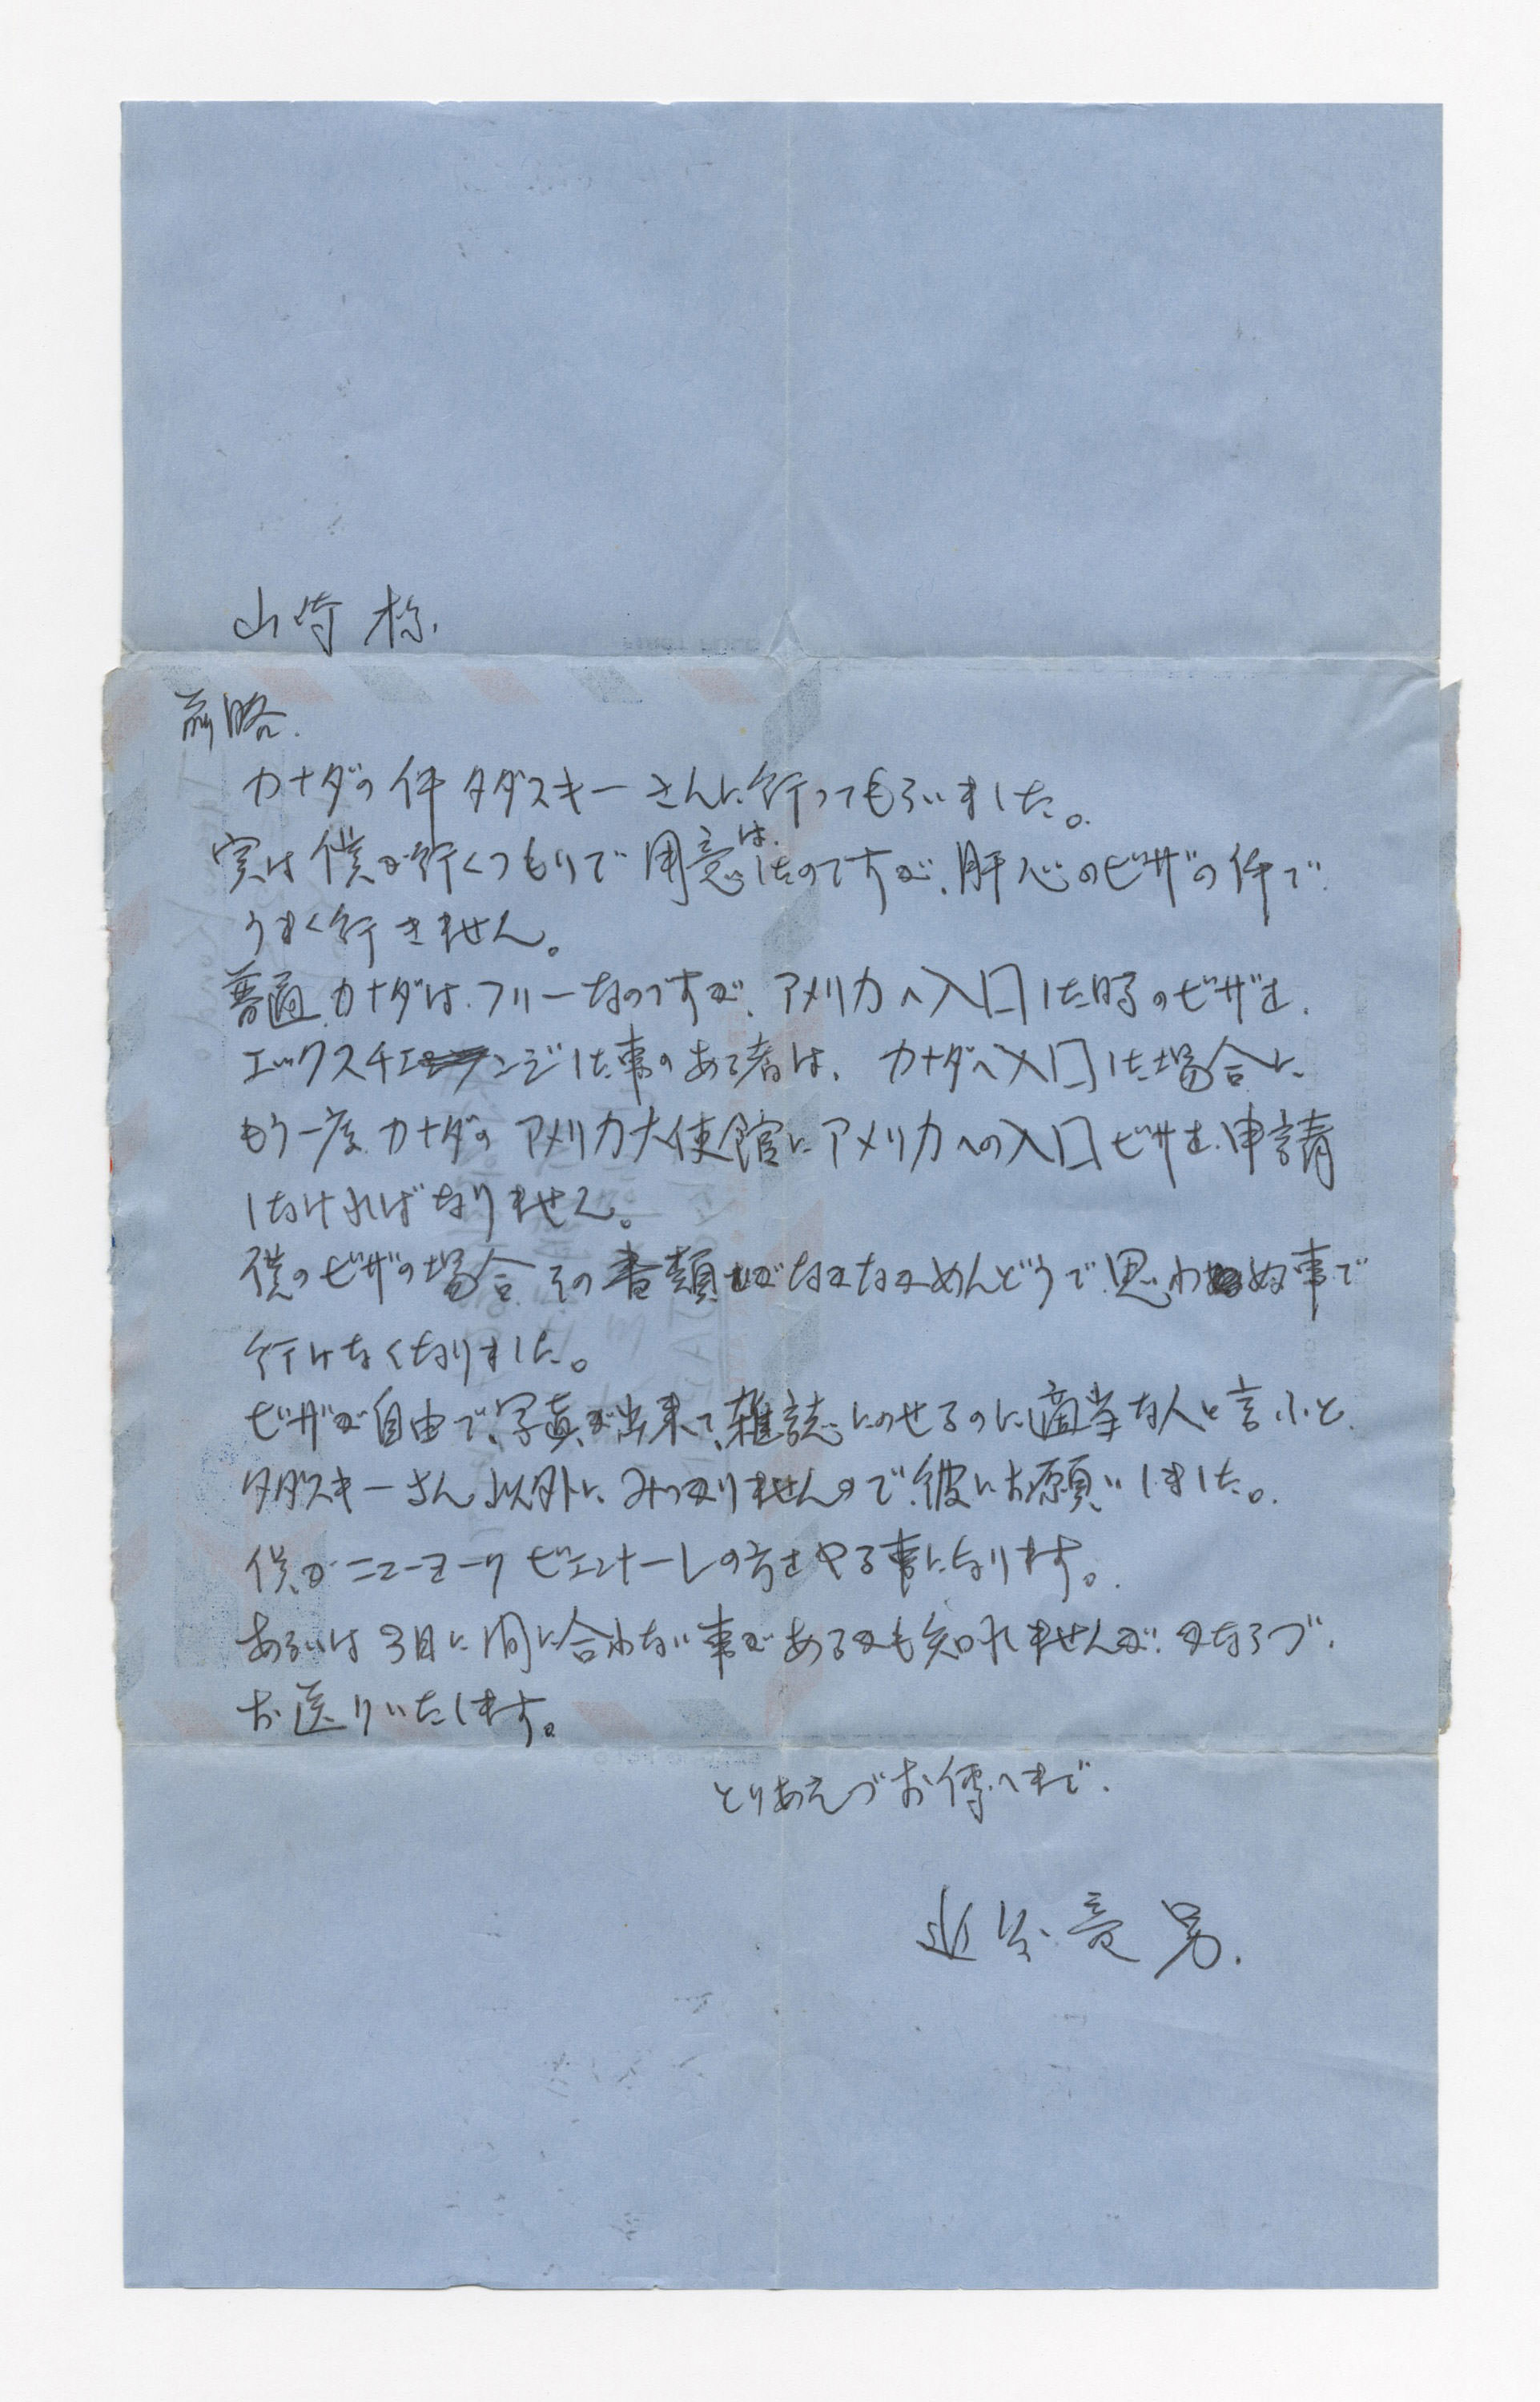 山崎様.
前略.
カナダの件タダスキーさんに行ってもらいました。
実は僕が行くつもりで用意はしたのですが、肝心のビザの件で
うまく行きません。
普通カナダは、フリーなのですが、アメリカへ入口した時のビザを、
エックスチェンジした事のある者は、カナダへ入口した場合に
もう一度カナダのアメリカ大使館にアメリカへの入口ビザを申請
しなければなりません。
僕のビザの場合その書類がなかなかめんどうで思わぬ事で
行けなくなりました。
ビザが自由で、写真が出来て、雑誌にのせるのに適当な人と言ふと
タダスキーさん以外にみつかりませんので彼にお願いしました。
僕がニューヨークビエンナーレの方をやる事になります。
あるいは3月に間に合わない事があるかも知れませんが、かならづ、
お送りいたします。
とりあえづお傳へまで.
近 竜男.